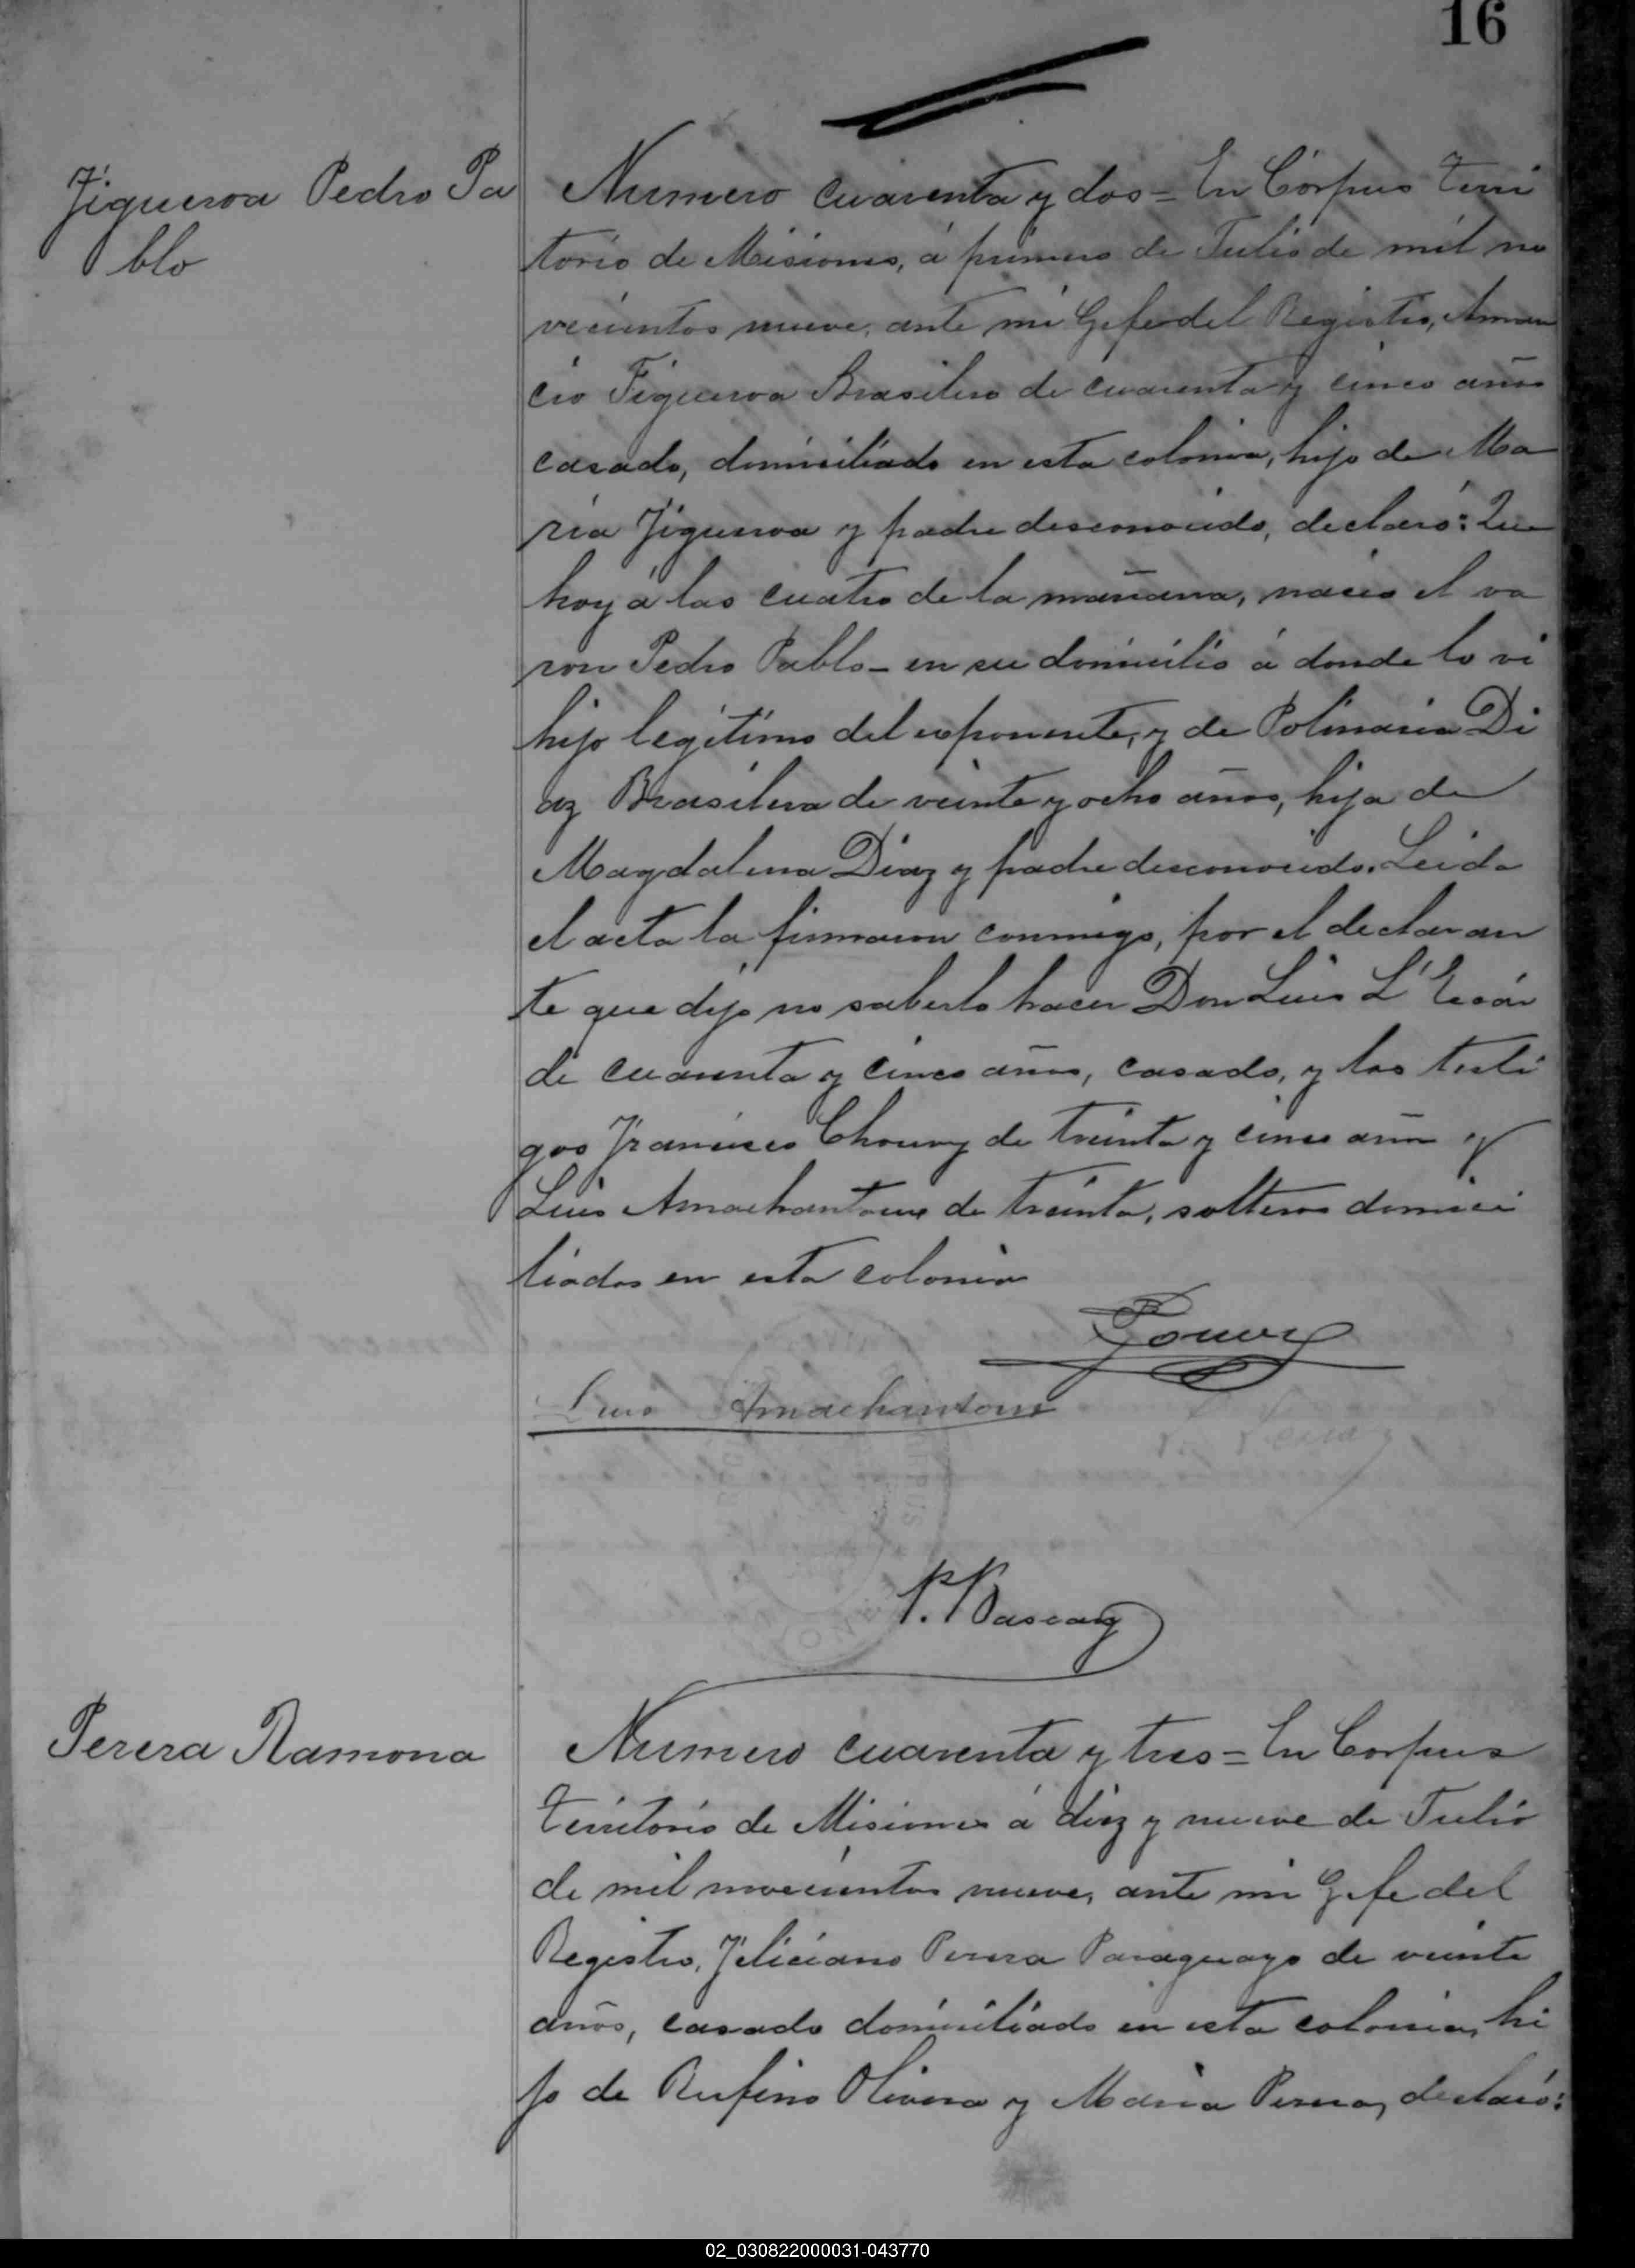 16
Figueroa Pedro Pa
blo
Numero cuarenta y dos = En Córpus Terri
torio de Misiones, á primero de Julio de mil no
vecientos nueve, ante mi Gefe del Registro, Aman
cio Figueroa Brasilero de cuarenta y cinco años
casado, domiciliado en esta colonia, hijo de Ma
ria Figueroa y padre desconocido, declaró: Que
hoy á las cuatro de la mañana, nació el va
ron Pedro Pablo - en su domicilio á donde lo vi
hijo legítimo del exponente, y de Polinaria Di
az Brasilera de veinte y ocho años, hija de
Magdalena Diaz y padre desconocido. Leida
el acta la firmaron conmigo, por el declaran
te que dijo no saberlo hacer Don Luis
de cuarenta y cinco años, casado, y los testi
gos Francisco Chouvy de treinta y cinco años y
Luis Amachantoux de treinta, solteros domici
liados en esta colonia
Luis
P.
Perera Ramona
Numero cuarenta y tres = En Corpus
Territorio de Misiones á diez y nueve de Julio
de mil novecientos nueve, ante mi Gefe del
Registro, Feliciano Perera Paraguayo de veinte
años, casado domiciliado en esta colonia, hi
jo de Rufino Olivera y Maria Perera, declaró:
02_030822000031-043770